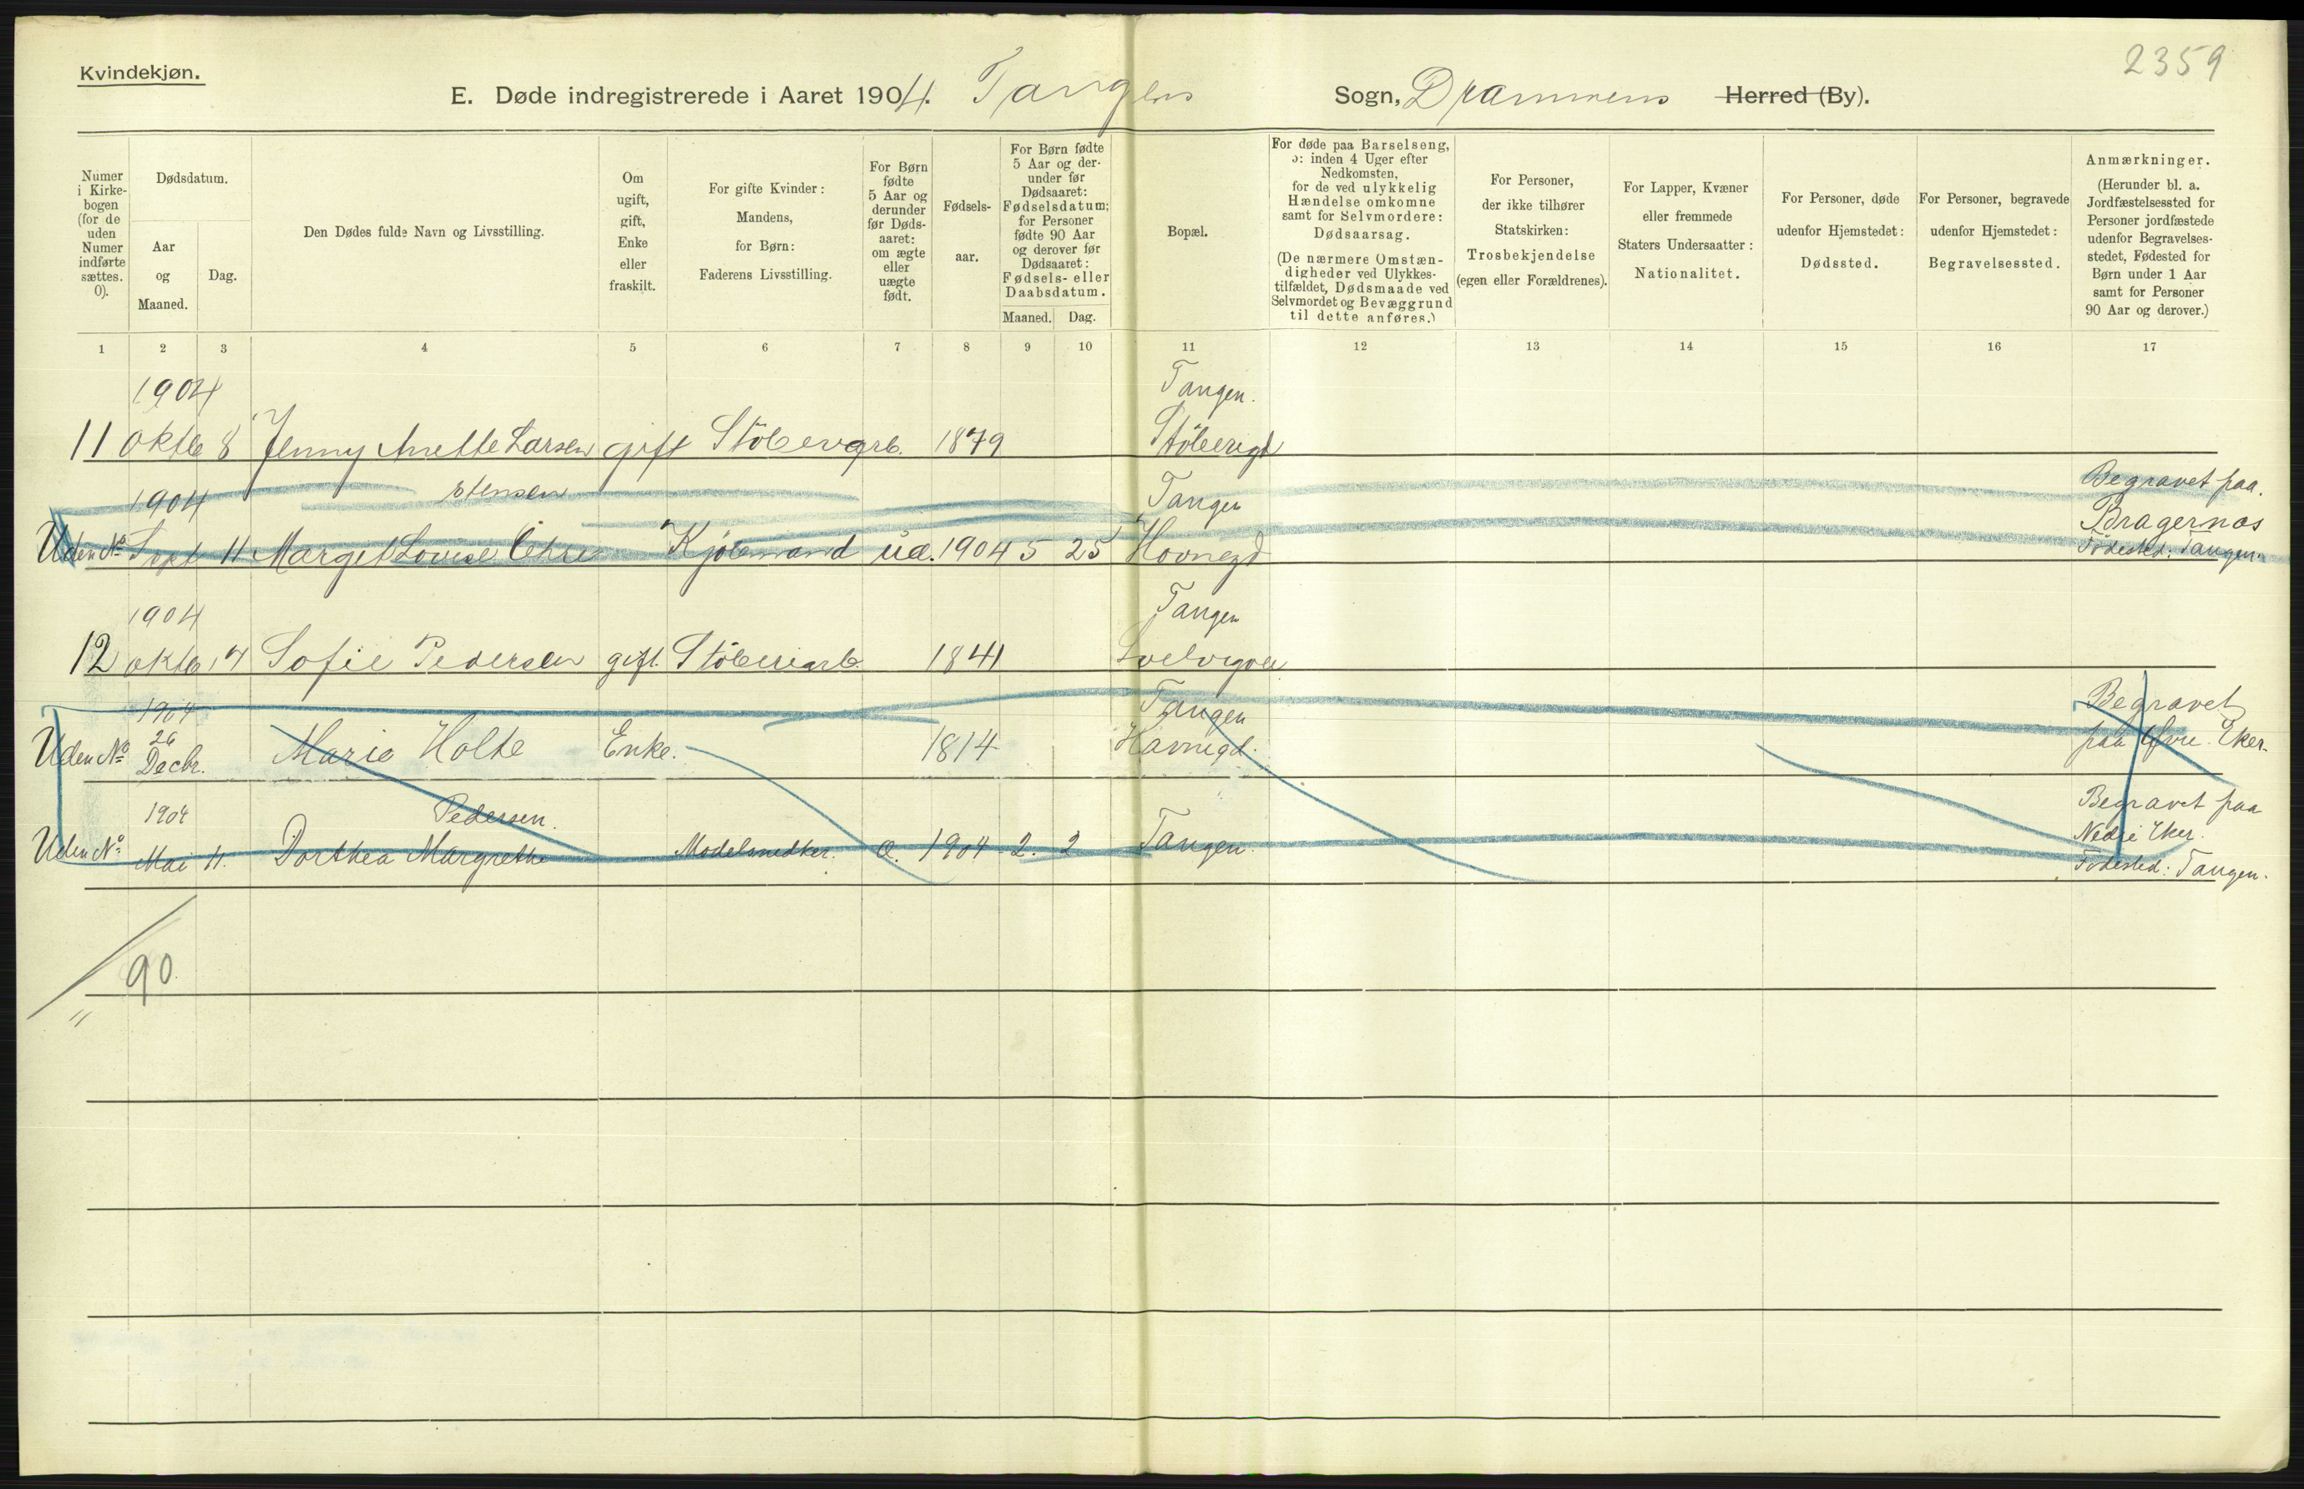 Kvindekjøn.
2359
E. Døde indregistrerede i Aaret 1904. Tangens Sogn, Drammens Herred (By).
Numer i Kirkebogen (for de uden Numer indførte sættes. 0).
Dødsdatum.
Aar og Maaned.
Dag.
Den Dødes fulde Navn og Livsstilling.
Om ugift, gift, Enke eller fraskilt.
For gifte Kvinder: Mandens, for Børn: Faderens Livsstilling.
For Børn fødte 5 Aar og derunder før Dødsaaret: om ægte eller uægte født.
Fødselsaar.
For Børn fødte 5 Aar og derunder før Dødsaaret: Fødselsdatum; for Personer fødte 90 Aar og derover før Dødsaaret: Fødsels- eller Daabsdatum.
Maaned. Dag.
Bopæl.
For døde paa Barselseng, ɔ: inden 4 Uger efter Nedkomsten, for de ved ulykkelig Hændelse omkomne samt for Selvmordere: Dødsaarsag.
(De nærmere Omstændigheder ved Ulykkestilfældet, Dødsmaade ved Selvmordet og Bevæggrund til dette anføres.)
For Personer, der ikke tilhører Statskirken: Trosbekjendelse (egen eller Forældrenes).
For Lapper, Kvæner eller fremmede Staters Undersaatter: Nationalitet.
For Personer, døde udenfor Hjemstedet: Dødssted.
For Personer, begravede udenfor Hjemstedet: Begravelsessted.
Anmærkninger.
(Herunder bl. a. Jordfæstelsessted for Personer jordfæstede udenfor Begravelsesstedet, Fødested for Børn under 1 Aar samt for Personer 90 Aar og derover.)
1 2 3 4 5 6 7 8 9 10 11 12 13 14 15 16 17
1904 Tangen.
11 Oktb 8 Jenny Anette Larsen gift Støberiarb. 1879 Støberigd
1904 Stensen Tangen Begravet paa
Uden No Sept 11 Margit Louise Kjøbmand u.æ. 1904 5 25 Havnegd Bragernæs
Fødested: Tangen.
1904 Tangen
12 Oktb 17 Sofie Pedersen gift. Støberiarb. 1841 Svelvigvei
1904 Tangen Begravet
Uden No 26 Decbr. Marie Holte Enke. 1814 Havnegd. paa Øvre Eker.
1904 Pedersen. Begravet paa
Uden No Mai 11. Dorthea Margrethe Modelsnedker. æ. 1904 2. 2 Tangen. Nedre Eker.
Fødested: Tangen.
90.
"